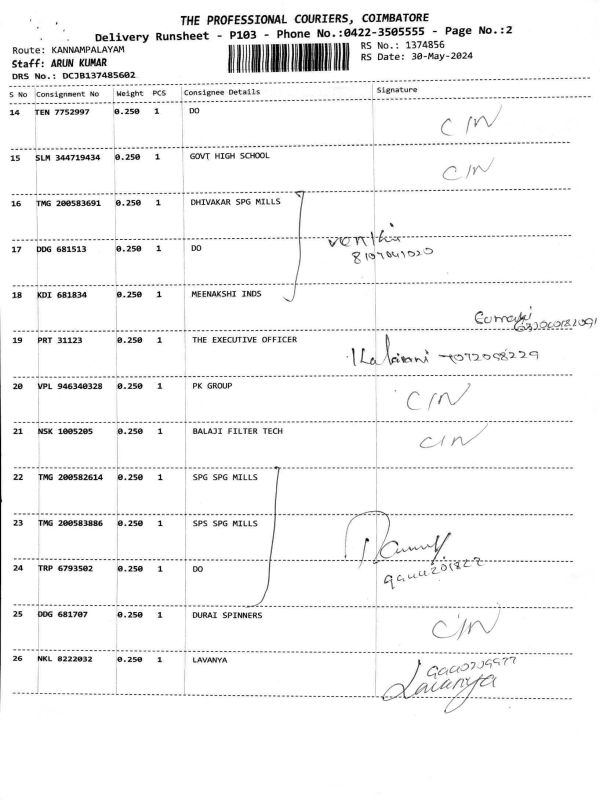 THE PROFESSIONAL COURIERS, COIMBATORE
Delivery Runsheet - P103 - Phone No.:0422-3505555 - Page No.:2
Route: KANNAMPALAYAM
RS No.: 1374856
Staff: ARUN KUMAR
RS Date: 30-May-2024
DRS No.: DCJB137485602
S No Consignment No Weight PCS Consignee Details Signature
14 TEN 7752997 0.250 1 DO C/N
15 SLM 344719434 0.250 1 GOVT HIGH SCHOOL C/N
16 TMG 200583691 0.250 1 DHIVAKAR SPG MILLS
17 DDG 681513 0.250 1 DO
18 KDI 681834 0.250 1 MEENAKSHI INDS
19 PRT 31123 0.250 1 THE EXECUTIVE OFFICER
20 VPL 946340328 0.250 1 PK GROUP C/N
21 NSK 1005205 0.250 1 BALAJI FILTER TECH C/N
22 TMG 200582614 0.250 1 SPG SPG MILLS
23 TMG 200583886 0.250 1 SPS SPG MILLS
24 TRP 6793502 0.250 1 DO
25 DDG 681707 0.250 1 DURAI SPINNERS C/N
26 NKL 8222032 0.250 1 LAVANYA
Lavanya